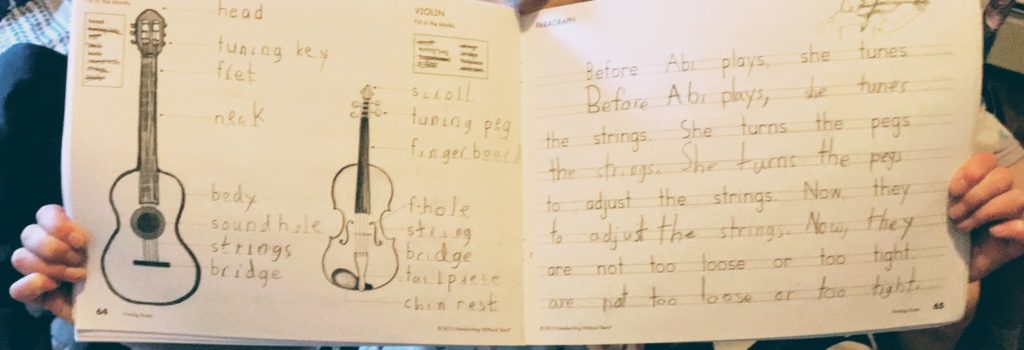 Fill in the Words.
head
tuning key
fret
neck
body
sound hole
strings
bridge
64
VIOLIN
Fill in the Words.
scroll
tuning peg
fingerboard
f-hole
string
bridge
tailpiece
chin rest
© 2013 Handwriting Without Tears®
PARAGRAPH
Before Abi plays, she tunes
Before Abi plays, she tunes
the strings. She turns the pegs
the strings. She turns the pegs
to adjust the strings. Now, they
to adjust the strings. Now, they
are not too loose or too tight.
are not too loose or too tight.
© 2013 Handwriting Without Tears®
65